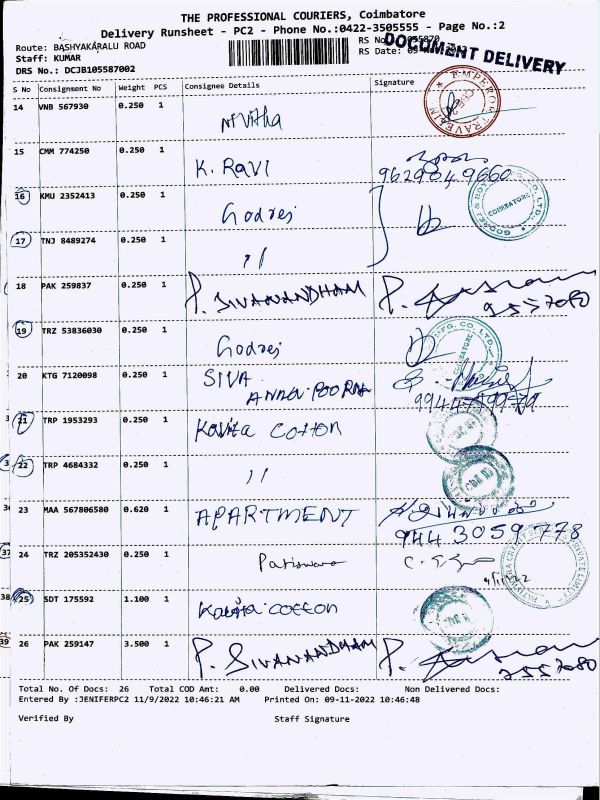 THE PROFESSIONAL COURIERS, Coimbatore
Delivery Runsheet - PC2 - Phone No.:0422-3505555 - Page No.:2
Route: BASHYAKARALU ROAD RS No
Staff: KUMAR RS Date: 09-
DRS No.: DCJB105587002
DOCUMENT DELIVERY
S No Consignment No Weight PCS Consignee Details Signature
14 VNB 567930 0.250 1 Nivitha
15 CMM 774250 0.250 1 K. RAVI
16 KMU 2352413 0.250 1 Godrej
COIMBATORE
17 TNJ 8489274 0.250 1 "
18 PAK 259837 0.250 1 P. SIVANANDHAM
19 TRZ 53836030 0.250 1 Godrej
20 KTG 7120098 0.250 1 SIVA
21 TRP 1953293 0.250 1 Kavita COTTON
22 TRP 4684332 0.250 1 "
23 MAA 567806580 0.620 1 APARTMENT
944 3059 778
24 TRZ 205352430 0.250 1
25 SDT 175592 1.100 1 Kavita COTTON
26 PAK 259147 3.500 1 P. SIVANANDHAM P.
Total No. Of Docs: 26 Total COD Amt: 0.00 Delivered Docs: Non Delivered Docs:
Entered By :JENIFERPC2 11/9/2022 10:46:21 AM Printed On: 09-11-2022 10:46:48
Verified By Staff Signature